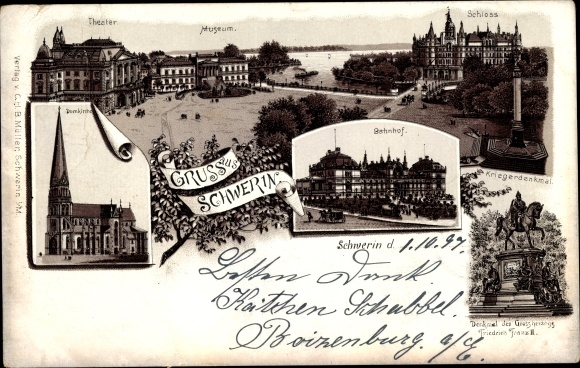 Theater
Museum.
Schloss
Verlag v. C. Jl. B. Müller, Schwerin i/M.
Domkirche
GRUSS aus
SCHWERIN
Bahnhof.
Kriegerdenkmal.
Schwerin d. 1.10.97.
Besten Dank.
Käthchen Schabbel.
Boizenburg a/E.
Denkmal des Grossherzogs
Friedrich Franz II.